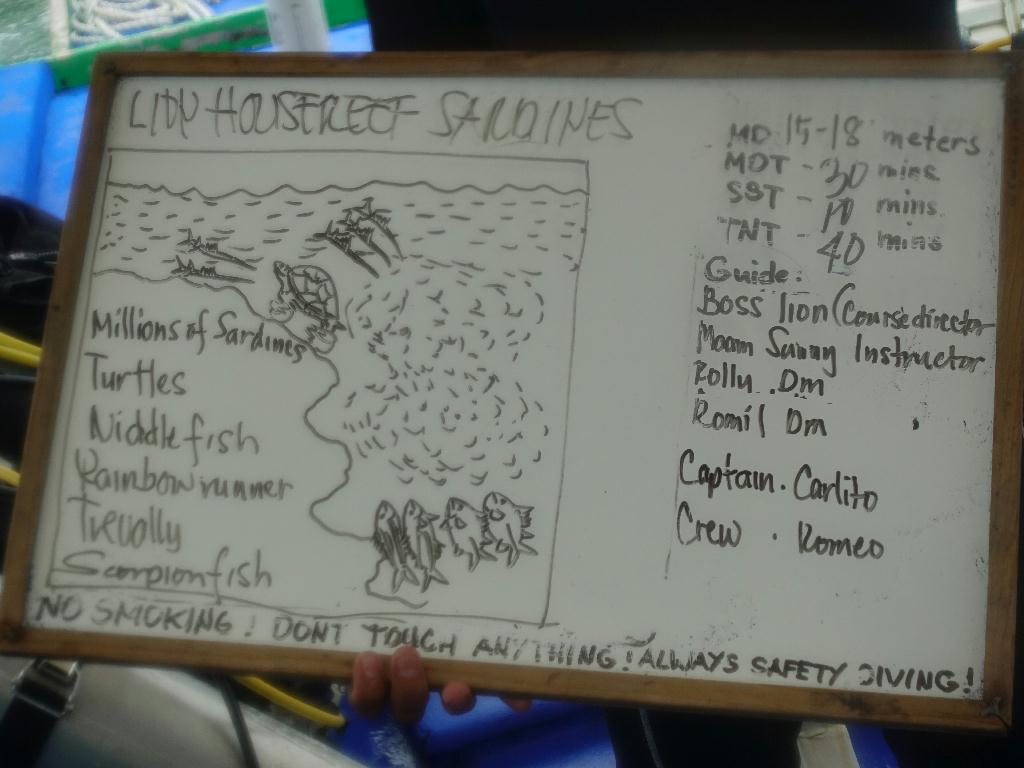 HOUSEREEF SARDINES
Millions of Sardines
Turtles
Niddlefish
Rainbow runner
Trevolly
Scorpionfish
MD 15-18 meters
MDT - 30 mins
SST - 10 mins
TNT - 40 mins
Guide:
Boss lion (Course director
Maam Sunny Instructor
Rollu. Dm
Romil Dm
Captain. Carlito
Crew. Romeo
NO SMOKING! DONT TOUCH ANYTHING! ALWAYS SAFETY DIVING!